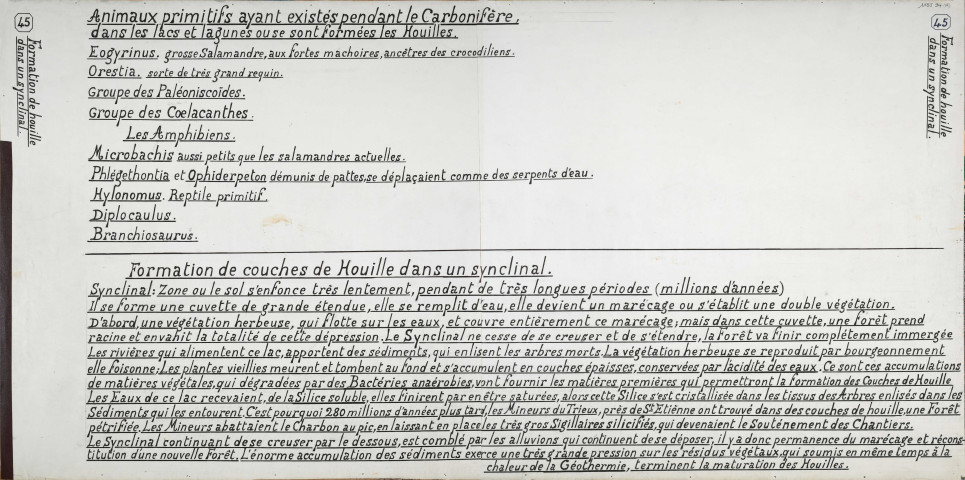 45
Formation de houille
dans un synclinal.
Animaux primitifs ayant existés pendant le Carbonifère,
dans les lacs et lagunes ou se sont formées les Houilles.
Eogyrinus. grosse Salamandre, aux fortes machoires, ancêtres des crocodiliens.
Orestia. sorte de très grand requin.
Groupe des Paléoniscoïdes.
Groupe des Cœlacanthes.
Les Amphibiens.
Microbachis aussi petits que les salamandres actuelles.
Phlégethontia et Ophiderpeton démunis de pattes, se déplaçaient comme des serpents d'eau.
Hylonomus. Reptile primitif.
Diplocaulus.
Branchiosaurus.
45
Formation de houille
dans un synclinal.
Formation de couches de Houille dans un synclinal.
Synclinal: Zone ou le sol s'enfonce très lentement, pendant de très longues périodes (millions d'années)
Il se forme une cuvette de grande étendue, elle se remplit d'eau, elle devient un marécage ou s'établit une double végétation.
D'abord, une végétation herbeuse, qui flotte sur les eaux, et couvre entièrement ce marécage; mais dans cette cuvette, une forêt prend
racine et envahit la totalité de cette dépression. Le Synclinal ne cesse de se creuser et de s'étendre, la Forêt va finir complètement immergée
Les rivières qui alimentent ce lac, apportent des sédiments, qui enlisent les arbres morts. La végétation herbeuse se reproduit par bourgeonnement
elle foisonne; Les plantes vieillies meurent et tombent au fond et s'accumulent en couches épaisses, conservées par l'acidité des eaux. Ce sont ces accumulations
de matières végétales, qui dégradées par des Bactéries anaérobies, vont fournir les matières premières qui permettront la formation des Couches de Houille
Les Eaux de ce lac recevaient, de la Silice soluble, elles finirent par en être saturées, alors cette Silice s'est cristallisée dans les tissus des Arbres enlisés dans les
Sédiments qui les entourent. C'est pourquoi 280 millions d'années plus tard, les Mineurs du Trieux, près de St Etiènne ont trouvé dans des couches de houille, une Forêt
pétrifiée. Les Mineurs abattaient le Charbon au pic, en laissant en place les très gros Sigillaires silicifiés, qui devenaient le Souténement des Chantiers.
Le Synclinal continuant de se creuser par le dessous, est comblé par les alluvions qui continuent de se déposer, il y a donc permanence du marécage et récons-
titution d'une nouvelle Forêt. L'énorme accumulation des sédiments exerce une très grande pression sur les résidus végétaux, qui soumis en même temps à la
chaleur de la Géothermie, terminent la maturation des Houilles.